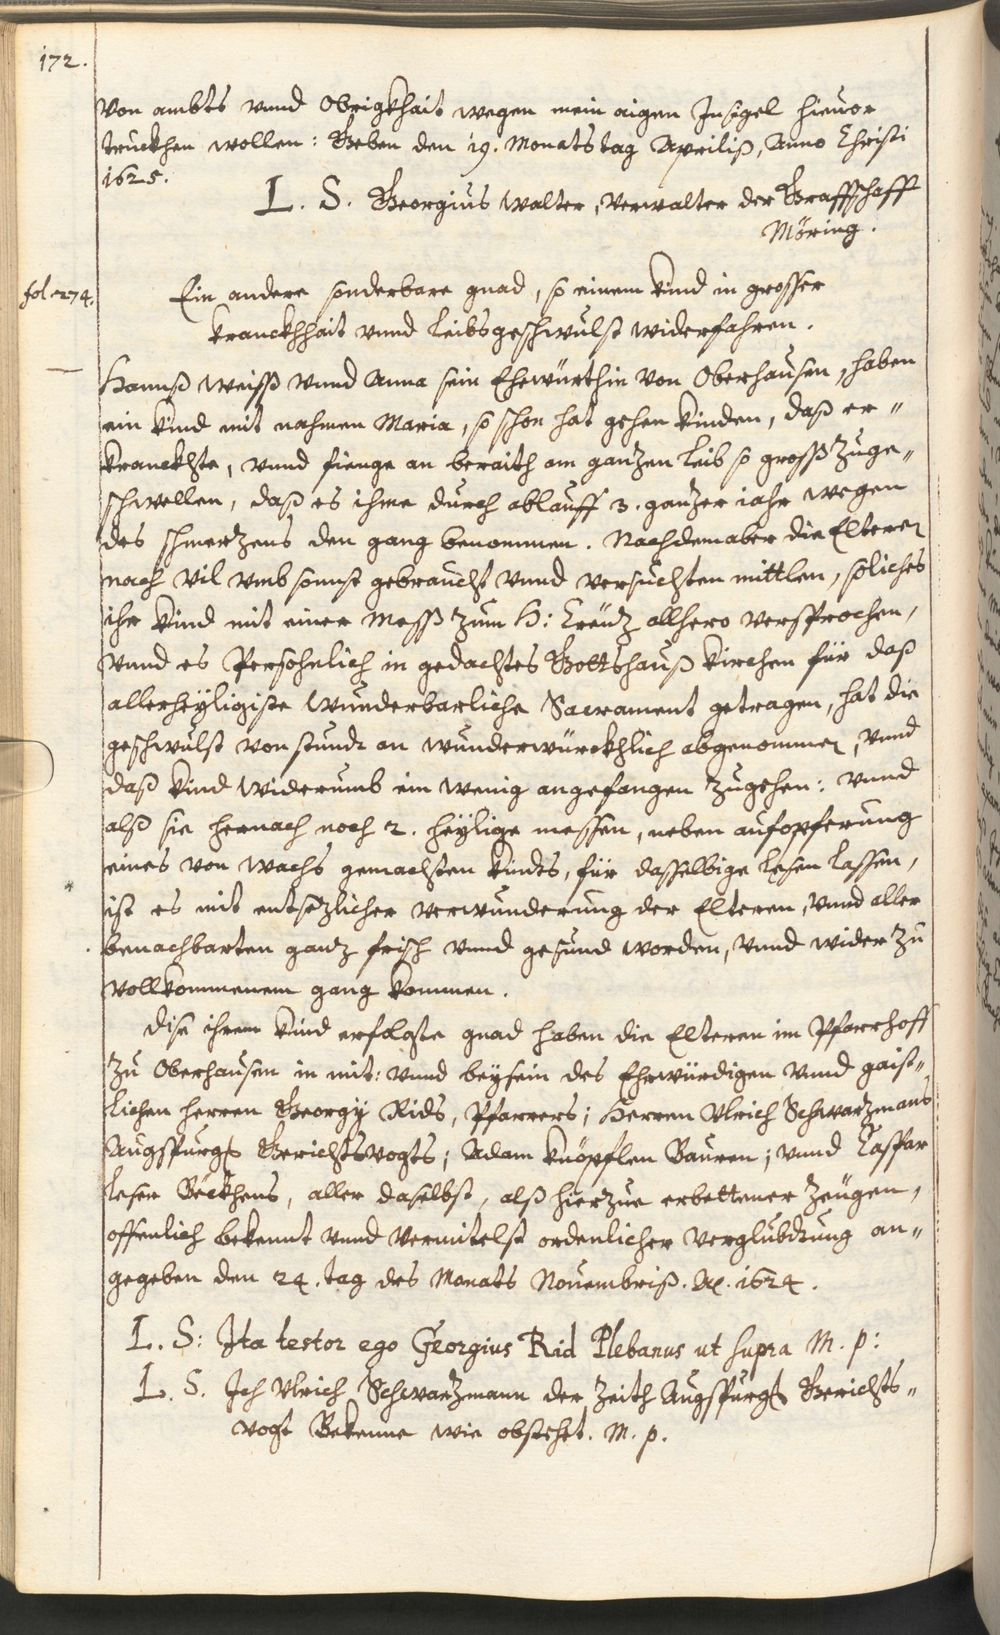 172.
von ambts vnnd Obrigkhait wegen mein aigen Insigel hieuor
truckhen wollen: Geben den 19. Monatstag Apriliß, Anno Christi
1625.
L. S. Georgius Walter, Verwalter der Graffschafft
Möring.
fol. 274.
Ein andere sonderbare gnad, so einem kind in grosser
kranckhhait vnnd leibsgeschwulst widerfahren.
Hannß Weiß vnnd Anna sein Ehewürthin von Oberhausen, haben
ein kind mit nahmen Maria, so schon hat gehen kinden, daß er-
kranckhte, vnnd fienge an beraith am ganzen leib so groß zuge-
schwellen, daß es ihme durch ablauff 3. ganzer iahr wegen
des schmertzens den gang benommen. Nachdem aber die Elteren
nach vil vmb sonnst gebraucht vnnd versuchten mittlen, soliches
ihr kind mit einer Meß zum H: Creütz allhero versprochen,
vnnd es Persohnlich in gedachtes Gottshauß kirchen für daß
allerheyligiste Wunderbarliche Sacrament getragen, hat die
geschwulst von stund an wunderwürckhlich abgenommen, vnnd
daß kind widerumb ein wenig angefangen zugehen: vnnd
alß sie hernach noch 2. heylige messen, neben aufopferung
eines von wachs gemachten kindts, für dasselbige lesen lassen,
ist es mit entsetzlicher verwunderung der Elteren, vnnd aller
benachbarten gantz frisch vnnd gesund worden, vnnd wider zu
vollkommenem gang kommen.
Dise ihrem kind erfolgte gnad haben die Elteren im Pfarrhoff
zu Oberhausen in mit: vnnd beysein des Ehrwürdigen vnnd gaist-
lichen herren Georgÿ Rids, Pfarrers; Herren Vlrich Schwartzmans
Augspurg: Gerichtsvogts; Adam Knöpflen Bauren; vnnd Caspar
Leser Böckhens, aller daselbst, alß hierzue erbettener Zeügen,
offenlich bekennt vnnd vermitelst ordenlicher verglübdtung an-
gegeben den 24. tag des Monats Nouembriß. Ao. 1624.
L. S: Ita testor ego Georgius Rid Plebanus ut supra M. p:
L. S. Ich Vlrich Schwartzmann der Zeith Augspurg: Gerichts-
vogt Bekenne wie obstehet. M. p.